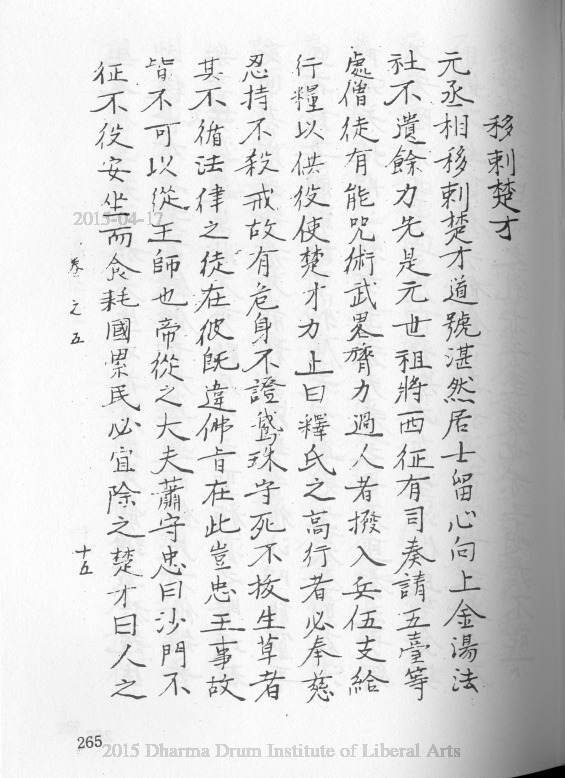 移剌楚才
元丞相移剌楚才道號湛然居士留心向上金湯法
社不遺餘力先是元世祖將西征有司奏請五臺等
處僧徒有能咒術武畧膂力過人者撥入兵伍支給
行糧以供役使楚才力止曰釋氏之高行者必奉慈
忍持不殺戒故有危身不證鵞珠守死不拔生草者
其不循法律之徒在彼旣違佛旨在此豈忠王事故
皆不可以從王師也帝從之大夫蕭守忠曰沙門不
征不役安坐而食耗國累民必宜除之楚才曰人之
卷之五
十五
2015-04-17
265
2015 Dharma Drum Institute of Liberal Arts